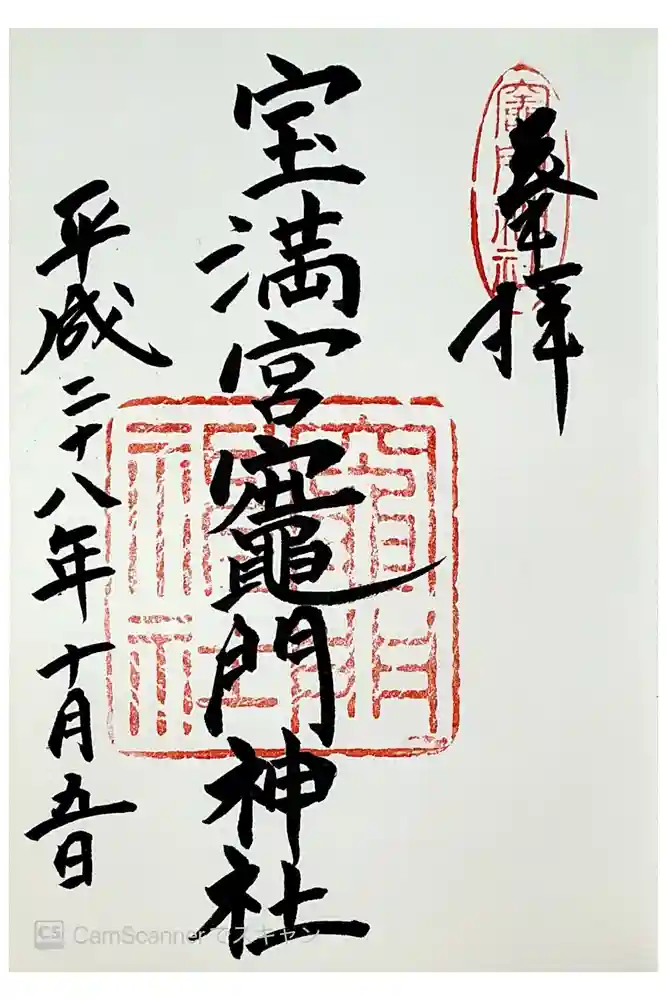 奉拝
宝満宮竈門神社
平成二十八年十月五日
竈門神社
CS CamScannerでスキャン